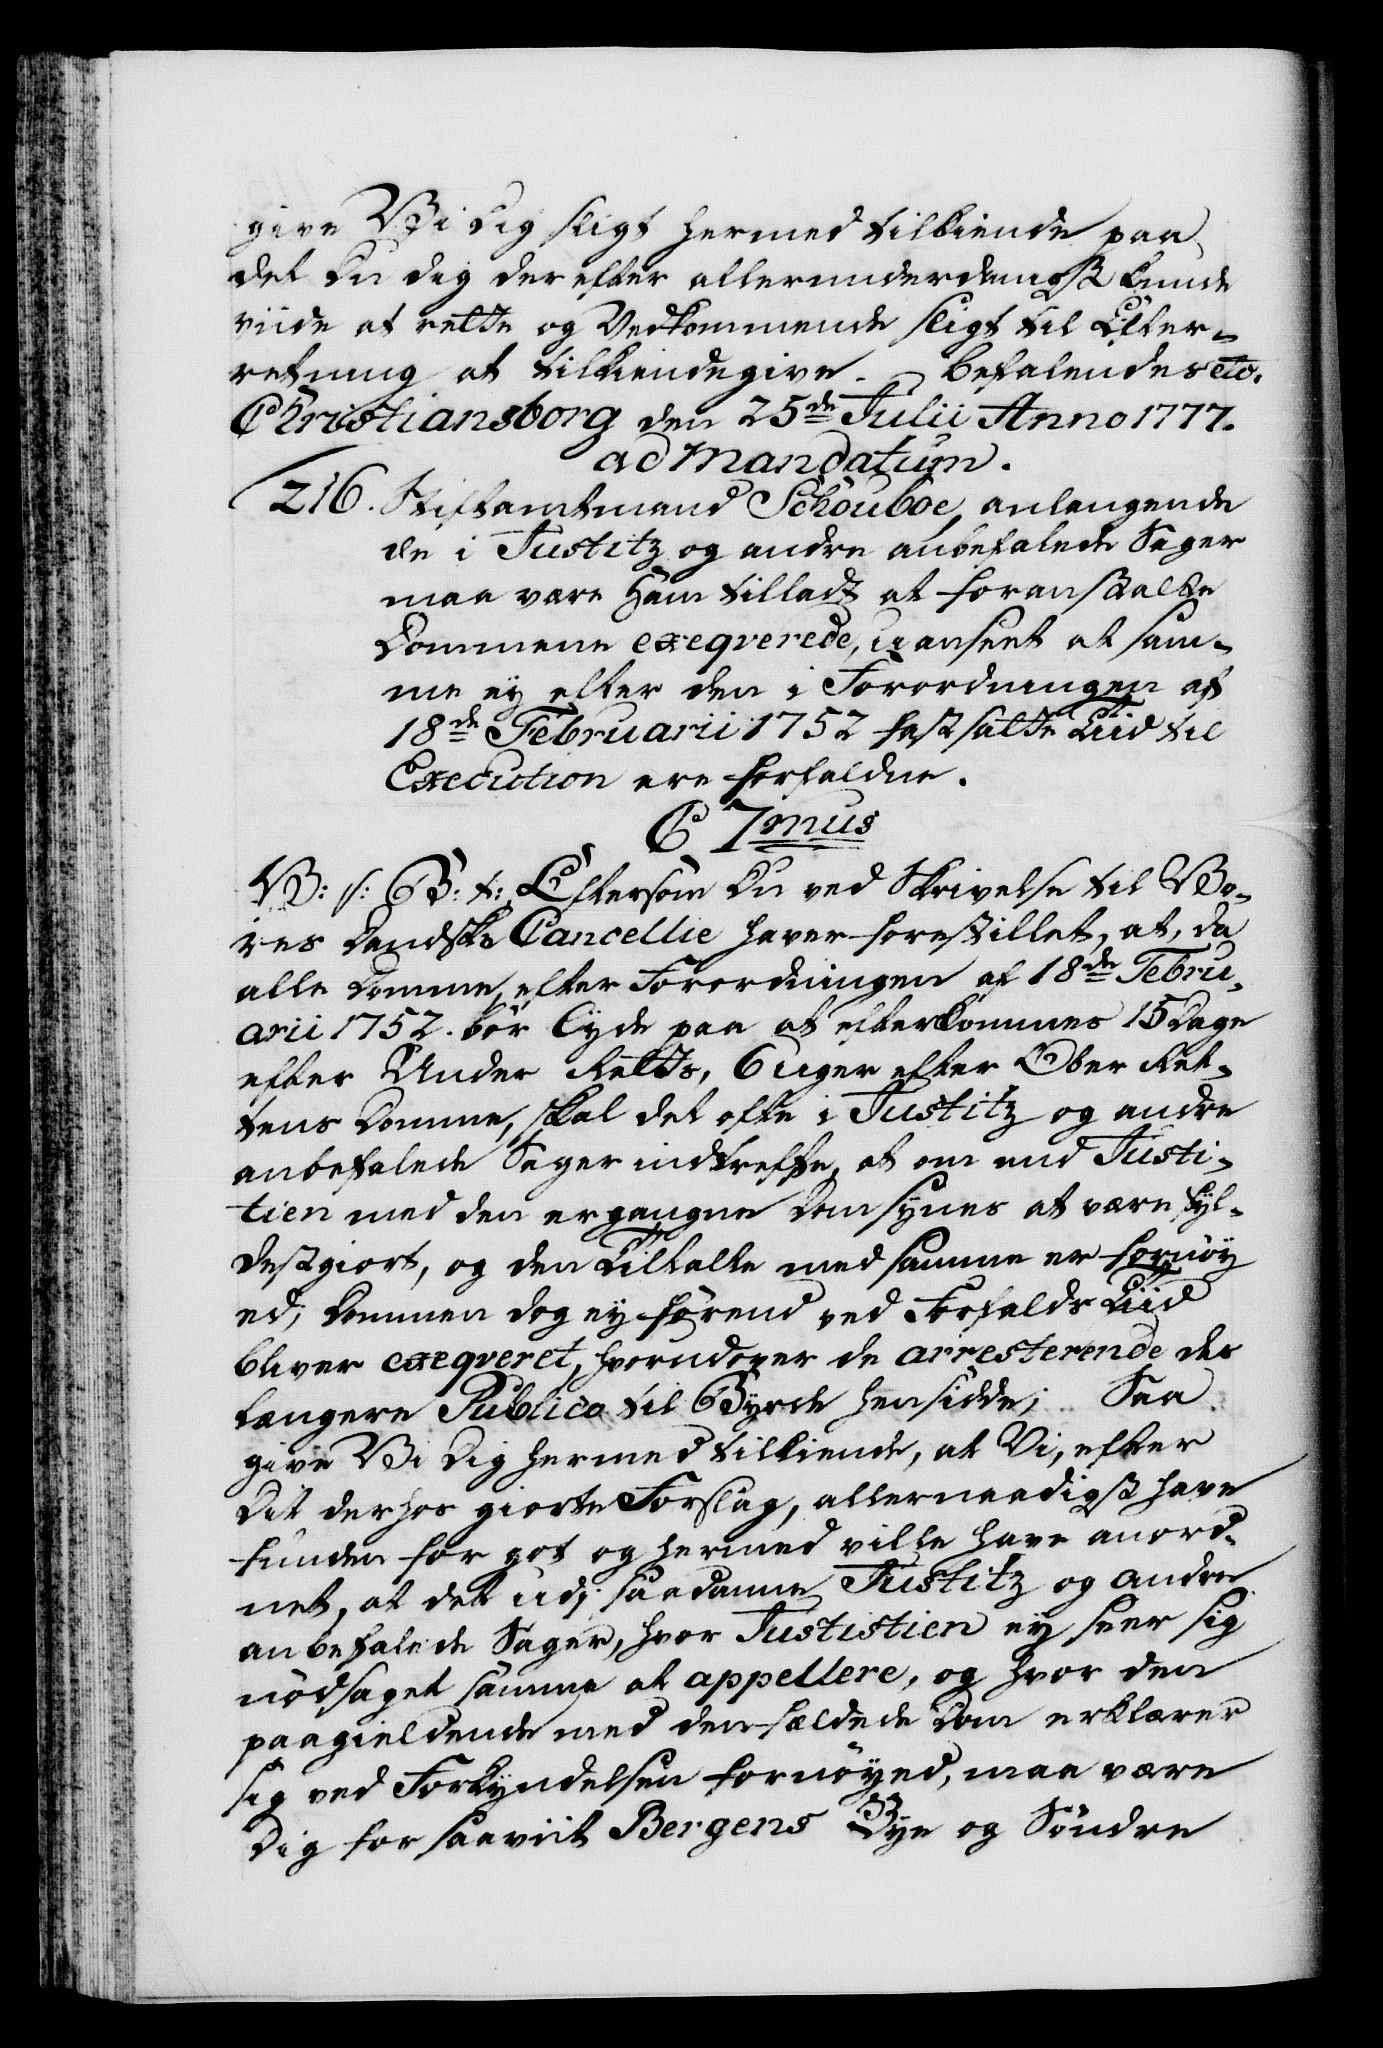 give Vi dig sligt hermed tilkiende paa
det Du dig derefter allerunderdanigst kunde
viide at rette og Vedkommende sligt til Efter-
retning at tilkiendegive. Befalendes etc.
Christiansborg den 25de Julii Anno 1777.
ad Mandatum.
216. Stiftamtmand Schouboe, anlangende
de i Justitz og andre anbefalede Sager
maa være Ham tilladt at foranstalte
Dommene exeqverede, uanseet at sam-
me ey efter den i Forordningen af
18de Februarii 1752 fastsatte Tiid til
Execution ere forfaldne.
C 7mus
V: s: G: t: Eftersom Du ved Skrivelse til Vo-
res Danske Cancellie haver forestillet, at, da
alle Domme, efter Forordningen af 18de Febru-
arii 1752. bør lyde paa at efterkommes 15 Dage
efter Under Retts, 6 uger efter Ober Ret-
tens Domme, skal det ofte i Justitz og andre
anbefalede Sager indtreffe, at om end Justi-
tien med den ergangne Dom synes at være fyl-
destgiort, og den Tiltalte med samme er fornøy
ed; Dommen dog ey førend ved Forfalds Tiid
bliver exeqveret, hvorudover de arresterende des
længere Publico til Byrde hensidde; Saa
give Vi Dig hermed tilkiende, at Vi, efter
Dit derhos giorte Forslag, allernaadigst have
funden for got og hermed ville have anord-
net, at det udj saadanne Justitz og andre
anbefalede Sager, hvor Justistien ey seer sig
nødsaget samme at appellere, og hvor den
paagieldende med den fældede Dom erklærer
sig ved Forkyndelsen fornøyed, maa være
Dig for saaviit Bergens Bye og Søndre